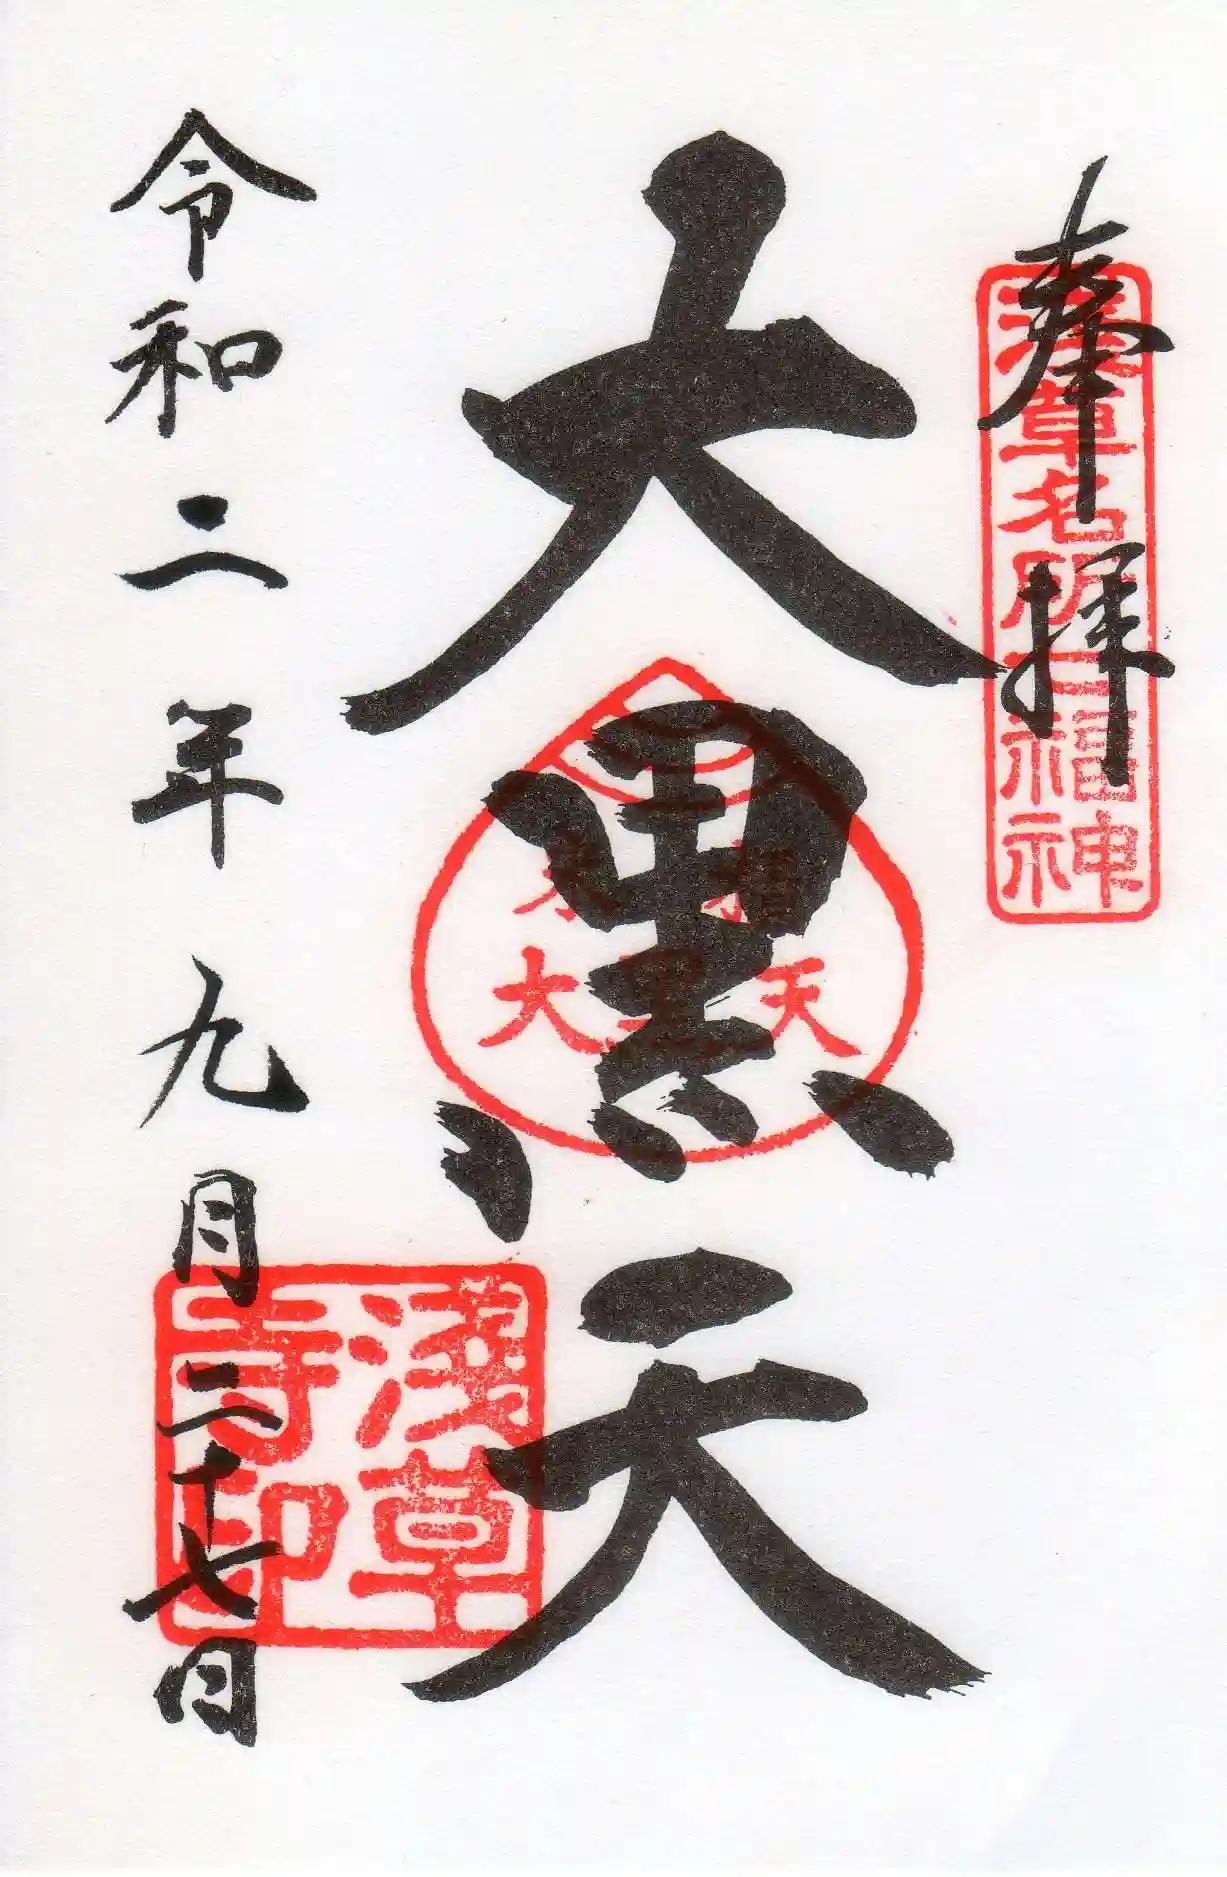 奉拝
浅草名所七福神
大黒天
大黒天
令和二年九月二十七日
浅草
寺印